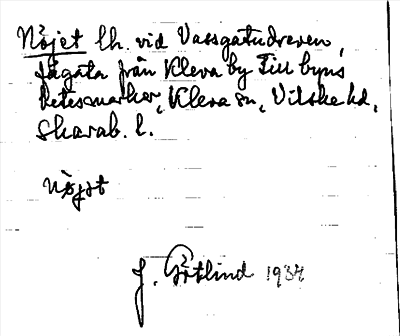 Nöjet lh. vid Vassgatudreven,
fägata från Kleva by till byns
betesmarker, Kleva sn, Vilske hd,
Skarab. l.
Nöjet
J. Götlind 1934